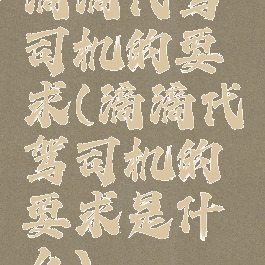 滴滴代驾
司机的要
求(滴滴代
驾司机的
要求是什
么)